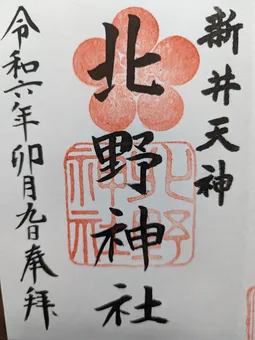 新井天神
北野神社
北野
神社
令和六年卯月九日奉拝